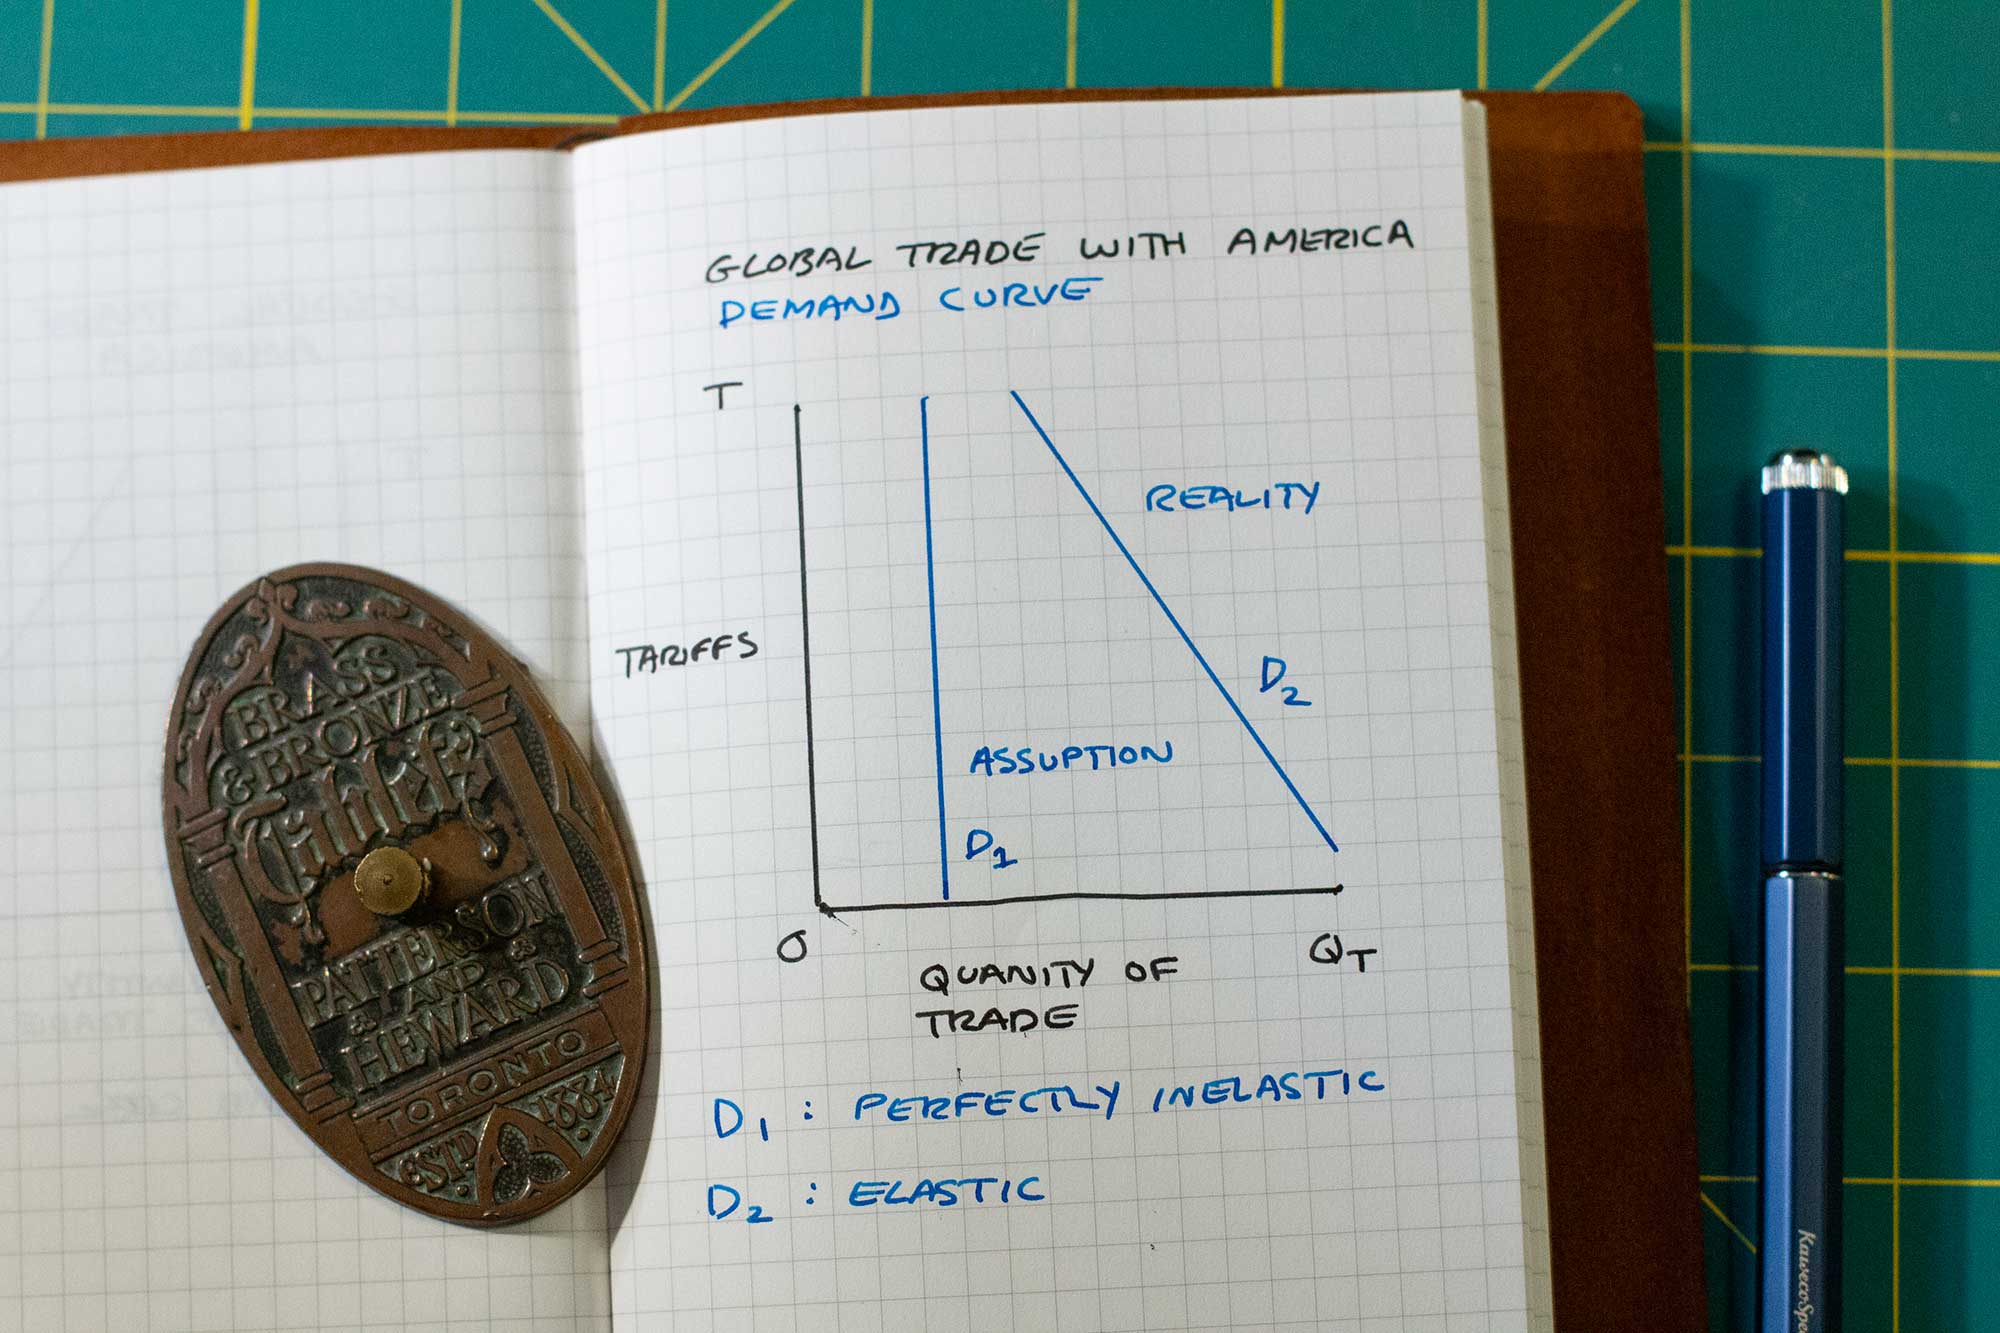 GLOBAL TRADE WITH AMERICA
DEMAND CURVE
T
REALITY
TARIFFS
D2
ASSUPTION
D1
O
QT
QUANITY OF
TRADE
D1 : PERFECTLY INELASTIC
D2 : ELASTIC
BRASS
& BRONZE
PATTERSON
AND
HEWARD
TORONTO
ESTD. 1884
KawecoSpe